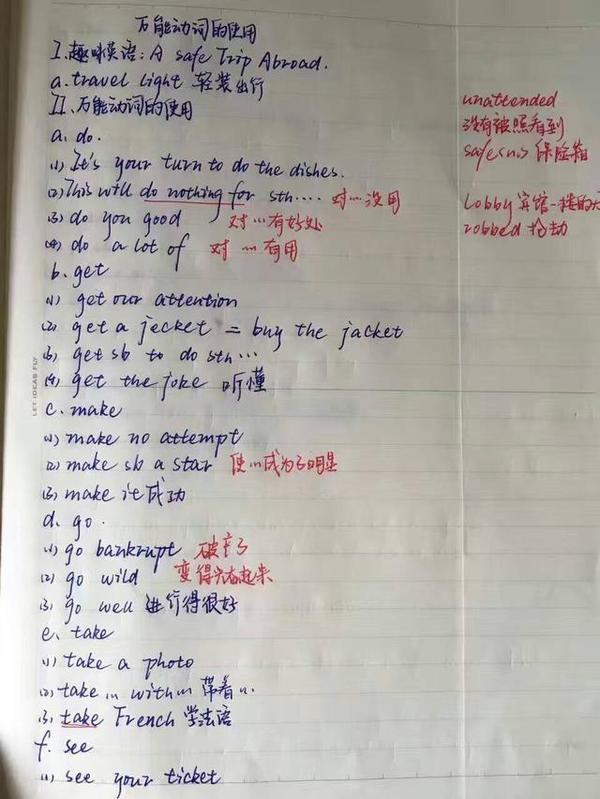 万能动词的使用
I. 趣味英语: A safe Trip Abroad.
a. travel Light 轻装出行
II. 万能动词的使用
a. do.
(1) It's your turn to do the dishes.
(2) This will do nothing for sth.... 对…没用
(3) do you good 对…有好处
(4) do a lot of 对…有用
b. get
(1) get our attention
(2) get a jecket = buy the jacket
(3) get sb to do sth...
(4) get the joke 听懂
c. make
(1) make no attempt
(2) make sb a star 使…成为了明星
(3) make it 成功
d. go.
(1) go bankrupt 破产了
(2) go wild 变得兴奋起来
(3) go well 进行得很好
e. take
(1) take a photo
(2) take … with … 带着…
(3) take French 学法语
f. see
(1) see your ticket
unattended
没有被照看到
safe(n.) 保险箱
Lobby 宾馆一楼的大
robbed 抢劫
LET IDEAS FLY